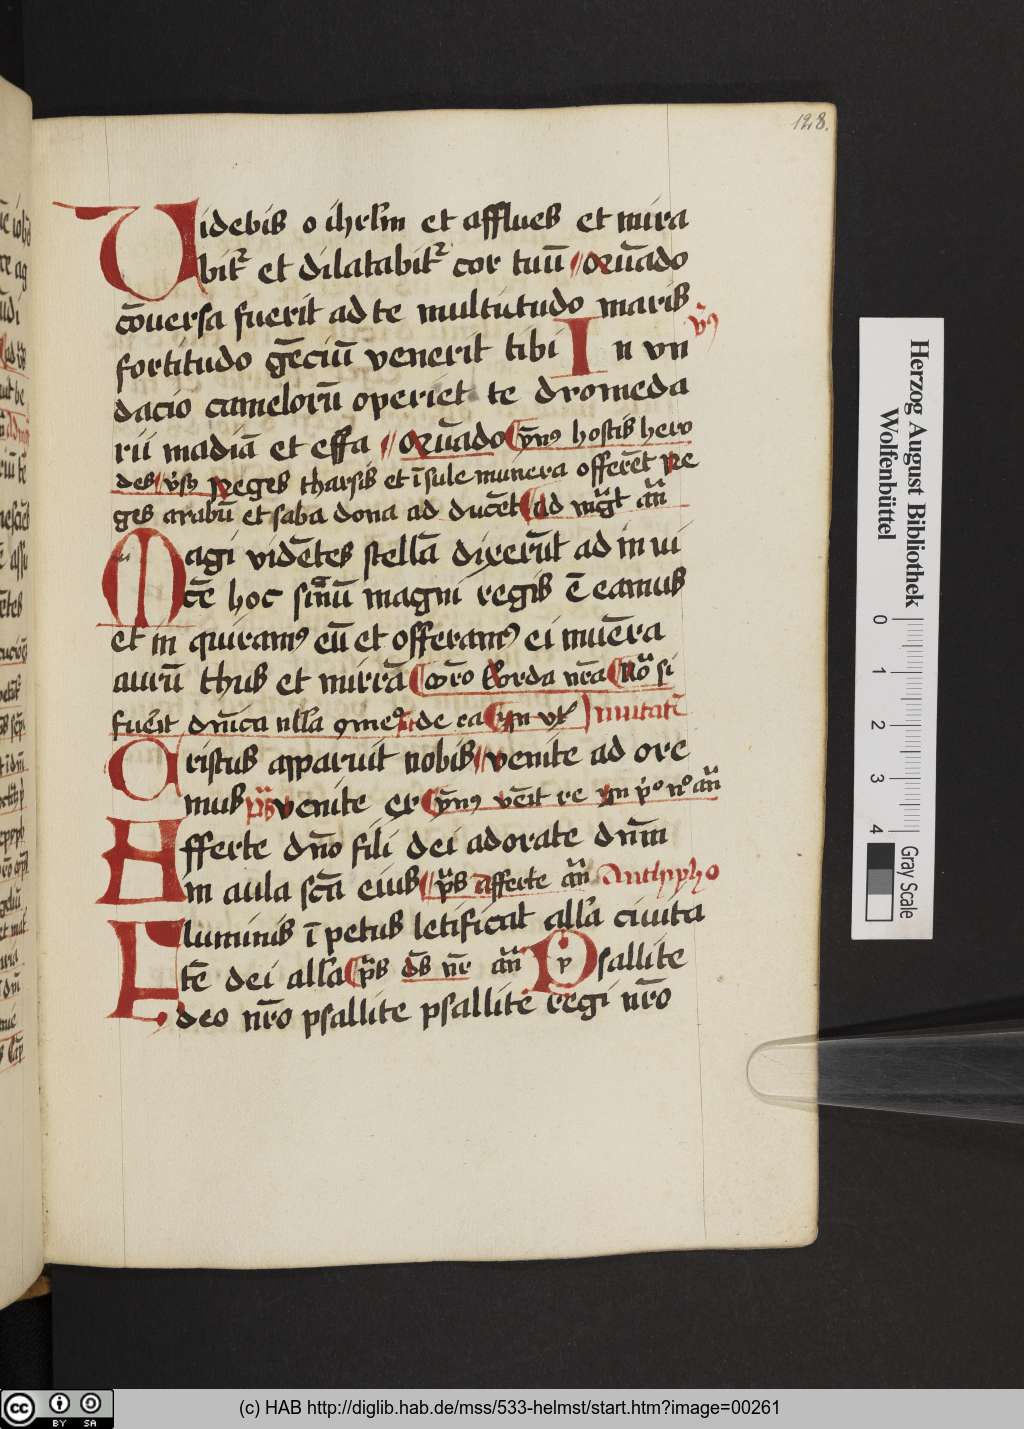 128.
Videbis o ihrl'm et afflues et mira
bit᷑ et dilatabit᷑ cor tuū Qn̄ado
cōuersa fuerit ad te multutudo maris
fortitudo gēciū venerit tibi In vn
dacio camelorū operiet te dromeda
rii madiā et effa Qn̄ado hostis hero
des Reges tharsis et īsule munera offerēt Re
ges arabū et saba dona ad ducēt ad mḡt an̄
Magi vidētes stellā dixerūt ad in ui
cē hoc signū magni regis ē eamus
et in quiramꝰ eū et offeramꝰ ei munēra
aurū thus et mirrā corda nr̄a si
fuerit dn̄ica nlla de ea Inuitatī
Cristus apparuit nobis venite ad ore
mus ps̄ venite ex vēit re an̄
Afferte dn̄o fili dei adorate dnm̄
in aula scā eius ps̄ afferte an̄ Anthipho
Fluminis īpetus letificat alla ciuita
tē dei alla ps̄ ds̄ nr̄ an̄ Psallite
deo nr̄o psallite psallite regi nr̄o
Herzog August Bibliothek
Wolfenbüttel
0 1 2 3 4
Gray Scale
cc BY SA
(c) HAB http://diglib.hab.de/mss/533-helmst/start.htm?image=00261